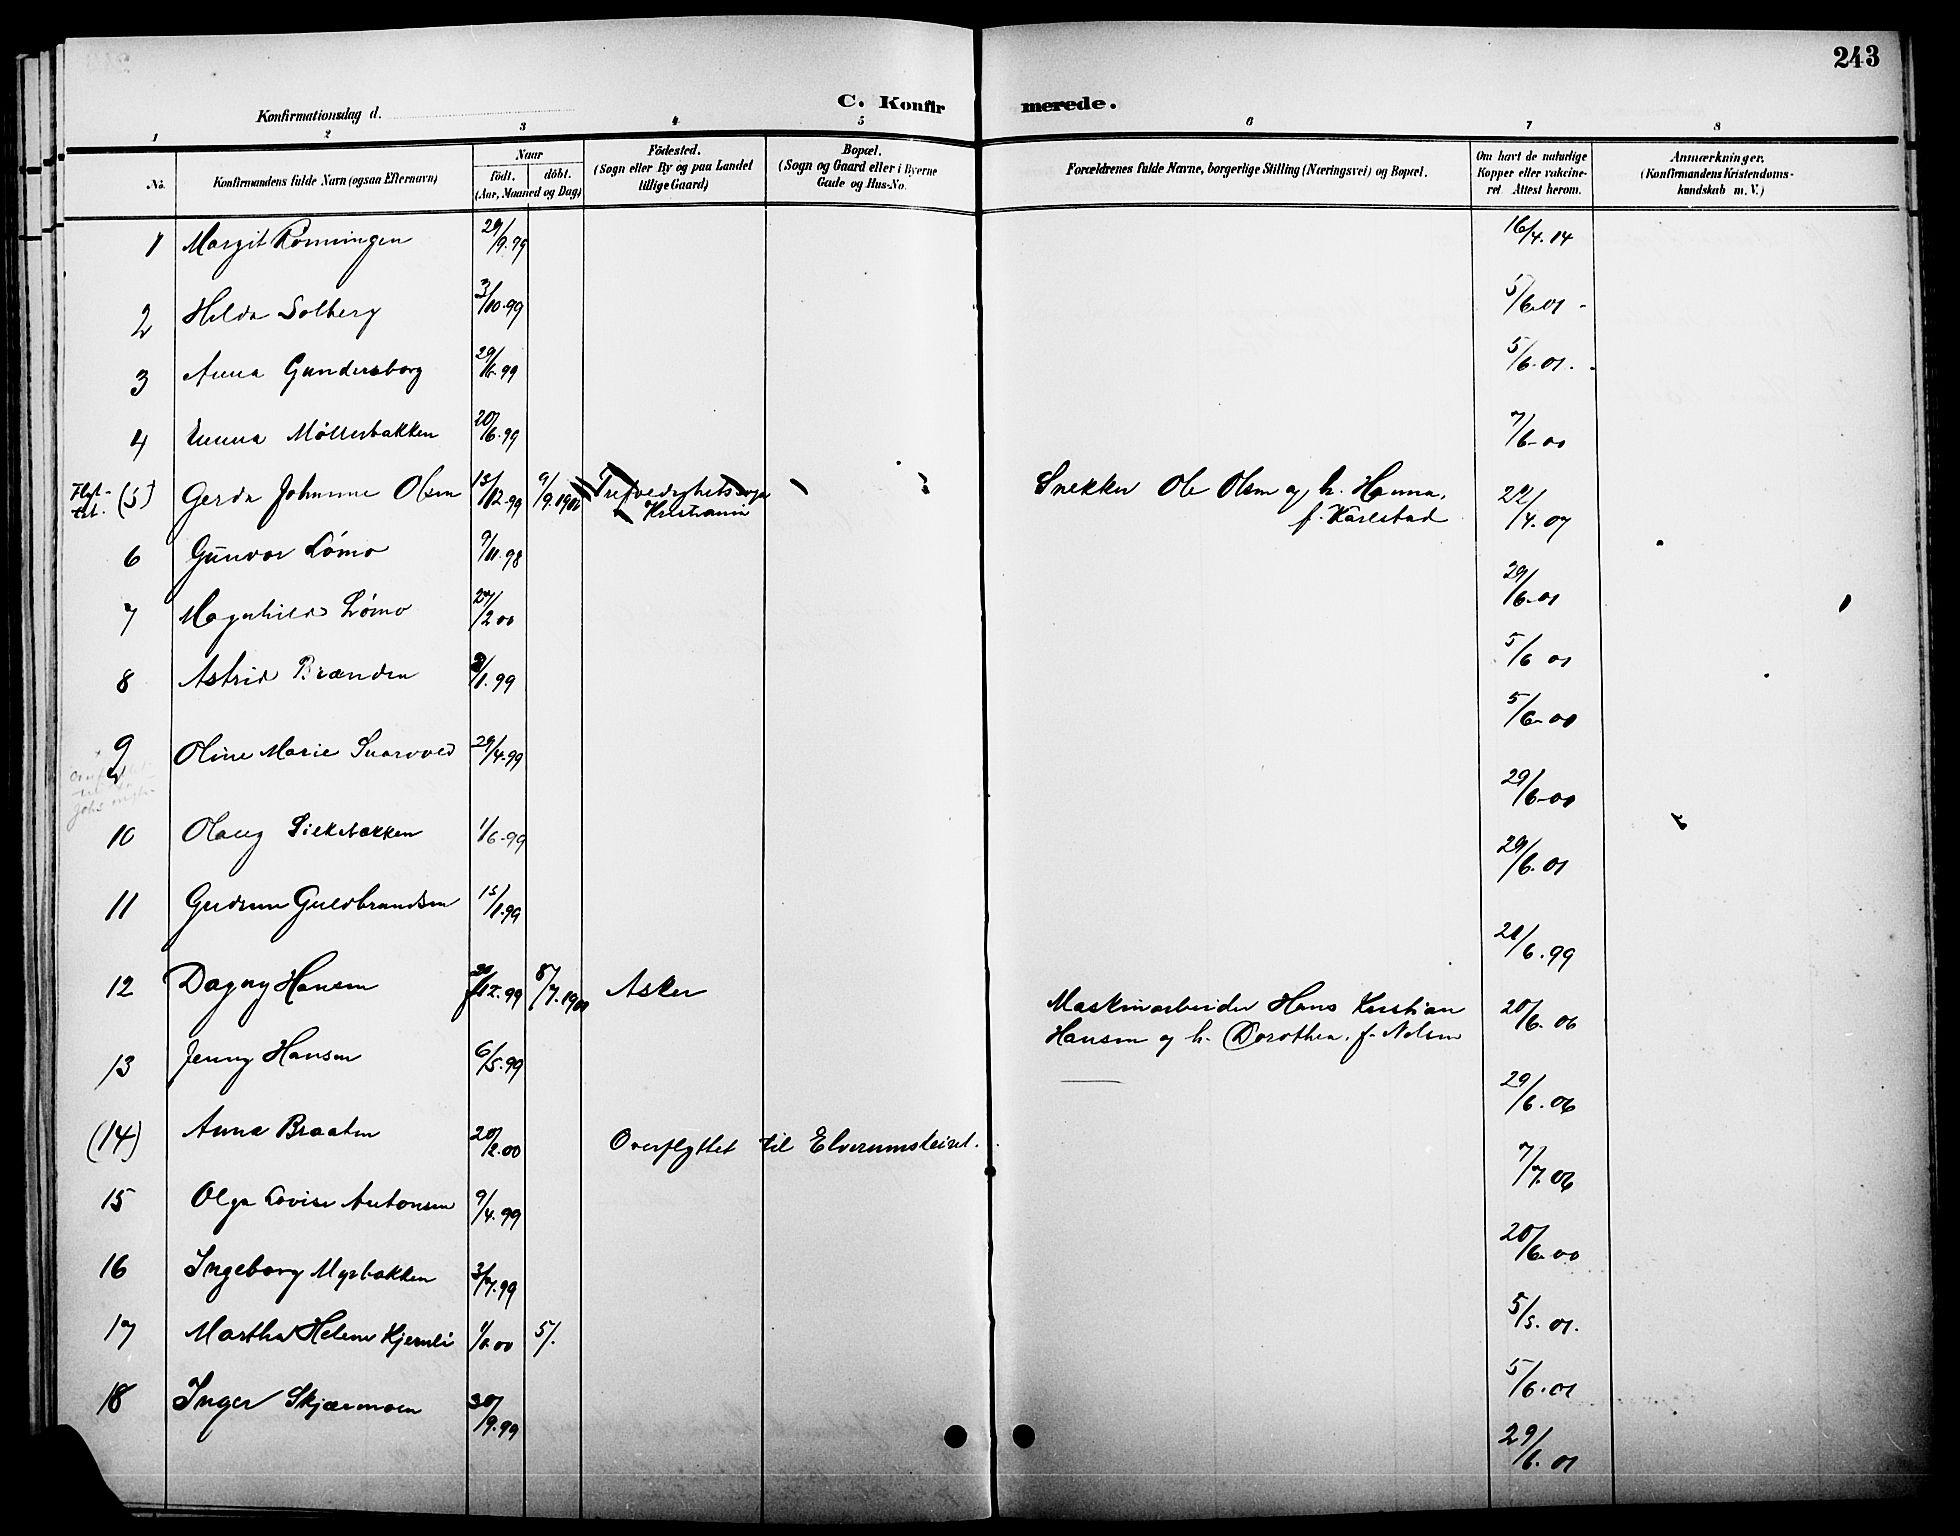 243
C. Konfirmerede.
Konfirmationsdag d.
1 2 3 4 5 6 7 8
No.
Konfirmandens fulde Navn (ogsaa Efternavn)
Naar
födt. döbt.
(Aar, Maaned og Dag)
Födested.
(Sogn eller By og paa Landet
tillige Gaard)
Bopæl.
(Sogn og Gaard eller i Byerne
Gade og Hus-No.
Forældrenes fulde Navne, borgerlige Stilling (Næringsvei) og Bopæl.
Om havt de naturlige
Kopper eller vakcine-
ret Attest herom.
Anmærkninger.
(Konfirmandens Kristendoms-
kundskab m. V.)
1 Margit Rønningen 29/9.99 16/4.14
2 Hilda Solberg 3/10.99 5/6.01
3 Anna Gundersborg 29/6.99 5/6.01.
4 Emma Möllerbakken 20/6.99 7/6-00
Flyt-
tet. (5) Gerda Johanne Olsen 15/12.99 9/9.1900 Trefoldighetssogn Snekker Ole Olsen og h. Hanna, 22/4.07
Kristiania f. Karlstad
6 Gunvor Lömo 9/11.98 29/6.01
7 Magnhild Lömo 27/2 00 5/6 01
8 Astrid Brænden 9/1.99 5/6-00
9 Oline Marie 29/4.99 29/6-00
10 Olaug 1/6-99 29/6.01
11 Gudrun Guldbrandsen 15/1.99 21/6.99
12 Dagny Hansen 30/12.99 8/7.1900 Asker Maskinarbeider Hans Kristian 20/6.06
Hansen og h. Dorothea, f. Nelsen
13 Jenny Hansen 6/5.99 29/6.06
(14) Anna Braaten 20/2.00 Overflyttet til Elverumsleiret. 7/7.06
15 Olga Lovise Antonsen 9/4.99 20/6.00
16 Ingeborg Myrbakken 3/7.99 5/5.01.
17 Martha Helene Kjernli 1/6.00 5/. 5/6.01
18 Inger Skjærmoen 30/9.99 29/6.01